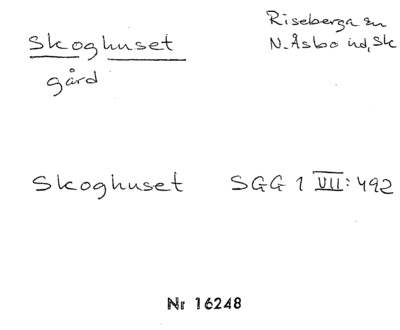 Skoghuset
gård
Riseberga sn
N. Åsbo hd, Sk
Skoghuset SGG 1 VII: 492
Nr 16248